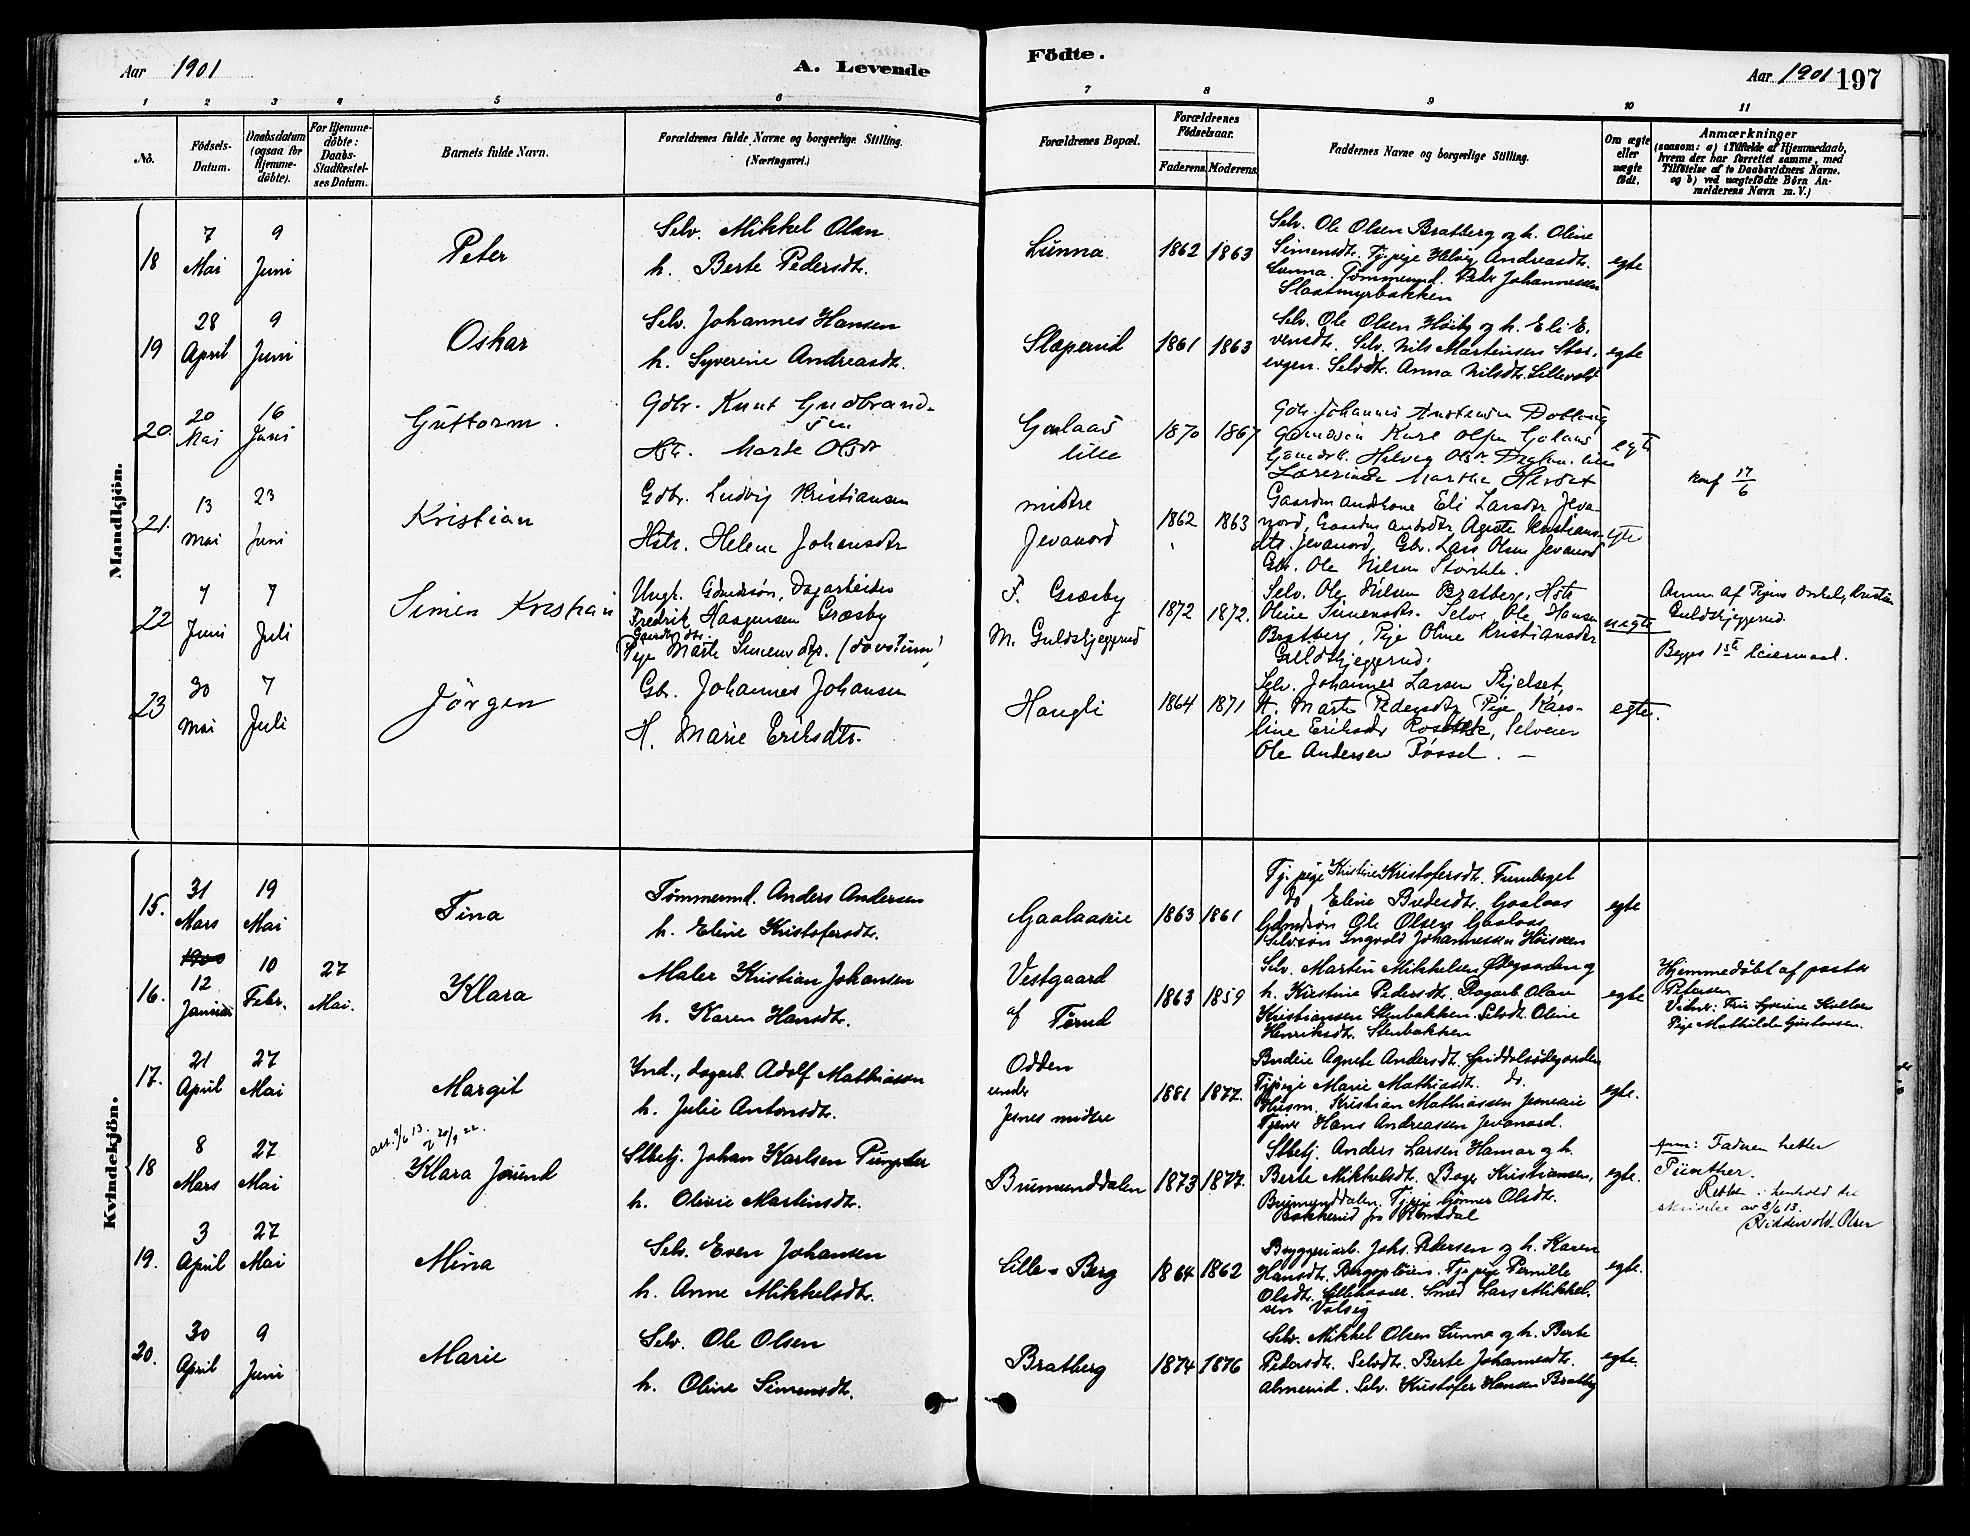 Aar 1901
A. Levende
Födte.
Aar 1901 197
1 2 3 4 5 6 7 8 9 10 11
No.
Födsels-
Datum.
Daabsdatum
(ogsaa for
Hjemme-
döbte).
For Hjemme-
döbte:
Daabs-
Stadfæstel-
ses Datum.
Barnets fulde Navn.
Forældrenes fulde Navne og borgerlige Stilling.
(Næringsvei.)
Forældrenes Bopæl.
Forældrenes
Födselsaar.
Faderens. Moderens.
Faddernes Navne og borgerlige Stilling.
Om ægte
eller
uægte
födt.
Anmærkninger
(saasom: a) i Tilfælde af Hjemmedaab,
hvem der har forrettet samme, med
Tilföielse af to Daabsvidners Navne.
og b) ved uægtefödte Börn An-
melderens Navn m. V.)
Mandkjön.
18
7
Mai
9
Juni
Peter
Selv. Mikkel Olsen
h. Berte Pedersdt.
Lunna
1862 1863
Selv. Ole Olsen Bratberg og h. Oline
Simensdt. Tj.pige Helvig Andreasdt.
Lunna. Tømmermd. Peder Johannessen
Slaatmyrbakken
egte
19
28
April
9
Juni
Oskar
Selv. Johannes Hansen
h. Syverine Andreasdt.
Slaperud
1861 1863
Selv. Ole Olsen Høiby og h. Eli E-
vensdt. Selv. Nils Martinsen Stor-
evgen. Selvdt. Anna Nilsdt. Lillevold
egte
20.
20
Mai
16
Juni
Guttorm.
Gdbr. Knut Gudbrand-
sen
Hst. Marte Olsdr
Gaalaas
lille
1870 1867
Gdbr. Johannes
Karl Olsen Golaas
Helvig Olsdr
Lærerinde Marthe
egte
konf 17/6
21.
13
Mai
23
Juni
Kristian
Gdbr. Ludvig Kristiansen
Hstr. Helene Johansdtr
midtre
Jevanord
1862 1863
Gaardmandskone Eli Larsdtr Jeva-
nord, Gaardmandsdtr Agnete Kristians-
dtr. Jevanord, Gbr. Lars Olsen Jevanord
Gbr. Ole Nilsen
egte
22
7
Juni
7
Juli
Simen Kristian
Ungk. Gdmdssøn, Dagarbeider
Fredrik Haagensen Græsby
Gaardmdsdtr.
Pige Marte Simensdtr.
F. Græsby
M. Guldskjeggerud
1872 1872.
Selv. Ole Nilsen Bratberg, Hstr
Oline Simensdtr. Selv. Ole Hansen
Bratberg, Pige Oline Kristiansdtr
Guldskjeggerud.
uegte
Anm. af Pigens Onkel, Kristian
Guldskjeggerud.
Begges 1ste Leiermaal.
23
30
Mai
7
Juli
Jörgen
Gbr. Johannes Johansen
H. Marie Eriksdtr.
Haugli
1864 1871
Selv. Johannes Larsen Skjelset,
H. Marte Pedersdtr, Pige Karo-
line Eriksdtr, Selveier
Ole Andersen Fossel. —
egte.
Kvindekjön.
15.
31
Mars
19
Mai
Tina
Tømmermd. Anders Andersen
h. Eline Kristofersdt.
Gaalaaseie
1863 1861
Tj.pige Kristine Kristofersdt.
do Eline Bredesdt. Gaalaas
Gdmdssøn Ole Olsen Gaalaas
Selvssøn Ingvold Johannessen
egte
16.
1900
12
Januar
10
Febr.
27
Mai.
Klara
Maler Kristian Johansen
h. Karen Hansdt.
Vestgaard
af Tørud
1863 1859
Selv. Martin Mikkelsen Ødegaarden og
h. Kristine Pedersdt. Dagarb. Olav
Kristiansen Stenbakken. Selvdt. Oline
Henriksdt. Stenbakken
egte
Hjemmedøbt af pastor
Petersen
Vidner: Fru Syverine
Pige Mathilde Gustavsen.
17.
21
April
27
Mai
Margit
Ind., dagarb. Adolf Mathiassen
h. Julie Antonsdt.
Odden
under
Jesnes midtre
1881 1877.
Budeie Agnete Andersdt.
Tj.pige Marie Mathiasdt. do.
Husm. Kristian Mathiassen Jesneseie
Tjener Hans Andreassen Jevanord.
egte.
18
8
Mars
27
Mai
Klara Jorund
Stbetj. Johan Karlsen
h. Olivie Martinsdt.
Brumunddalen
1873 1877.
Stbetj. Anders Larsen Hamar og h.
Berte Mikkelsdt. Bager Kristiansen,
Brumunddalen. Tj.pige Gunner Olsdt.
Bakkerud fra Romedal
egte.
Anm: Faderen hetter
Pünther.
Rettet i henhold til
skrivelse av 5/6 13.
Riddervold Olsen
19.
3
April
27
Mai
Mina
Selv. Even Johansen
h. Anne Mikkelsdt.
Lille-Berg
1864 1862
Bryggeriarb. Johs. Pedersen og h. Karen
Hansdt. Tj.pige Pernille
Olsdt. Smed Lars Mikkel-
sen Valseg
egte.
20.
30
April
9
Juni
Marie
Selv. Ole Olsen
h. Oline Simensdt.
Bratberg
1874 1876
Selv. Mikkel Olsen Lunna og h. Berte
Pedersdt. Selvdt. Berte Johannesdt.
Almerud. Selv. Kristofer Hansen Bratberg
egte